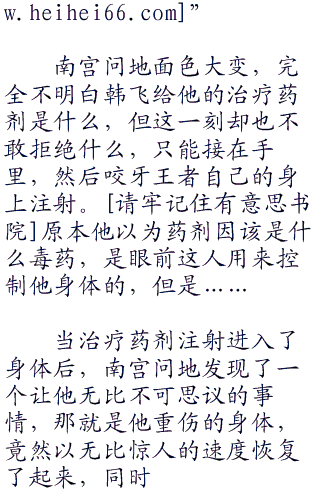 w.heihei66.com]”
南宫问地面色大变，完
全不明白韩飞给他的治疗药
剂是什么，但这一刻却也不
敢拒绝什么，只能接在手
里，然后咬牙王者自己的身
上注射。[请牢记住有意思书
院]原本他以为药剂因该是什
么毒药，是眼前这人用来控
制他身体的，但是……
当治疗药剂注射进入了
身体后，南宫问地发现了一
个让他无比不可思议的事
情，那就是他重伤的身体，
竟然以无比惊人的速度恢复
了起来，同时